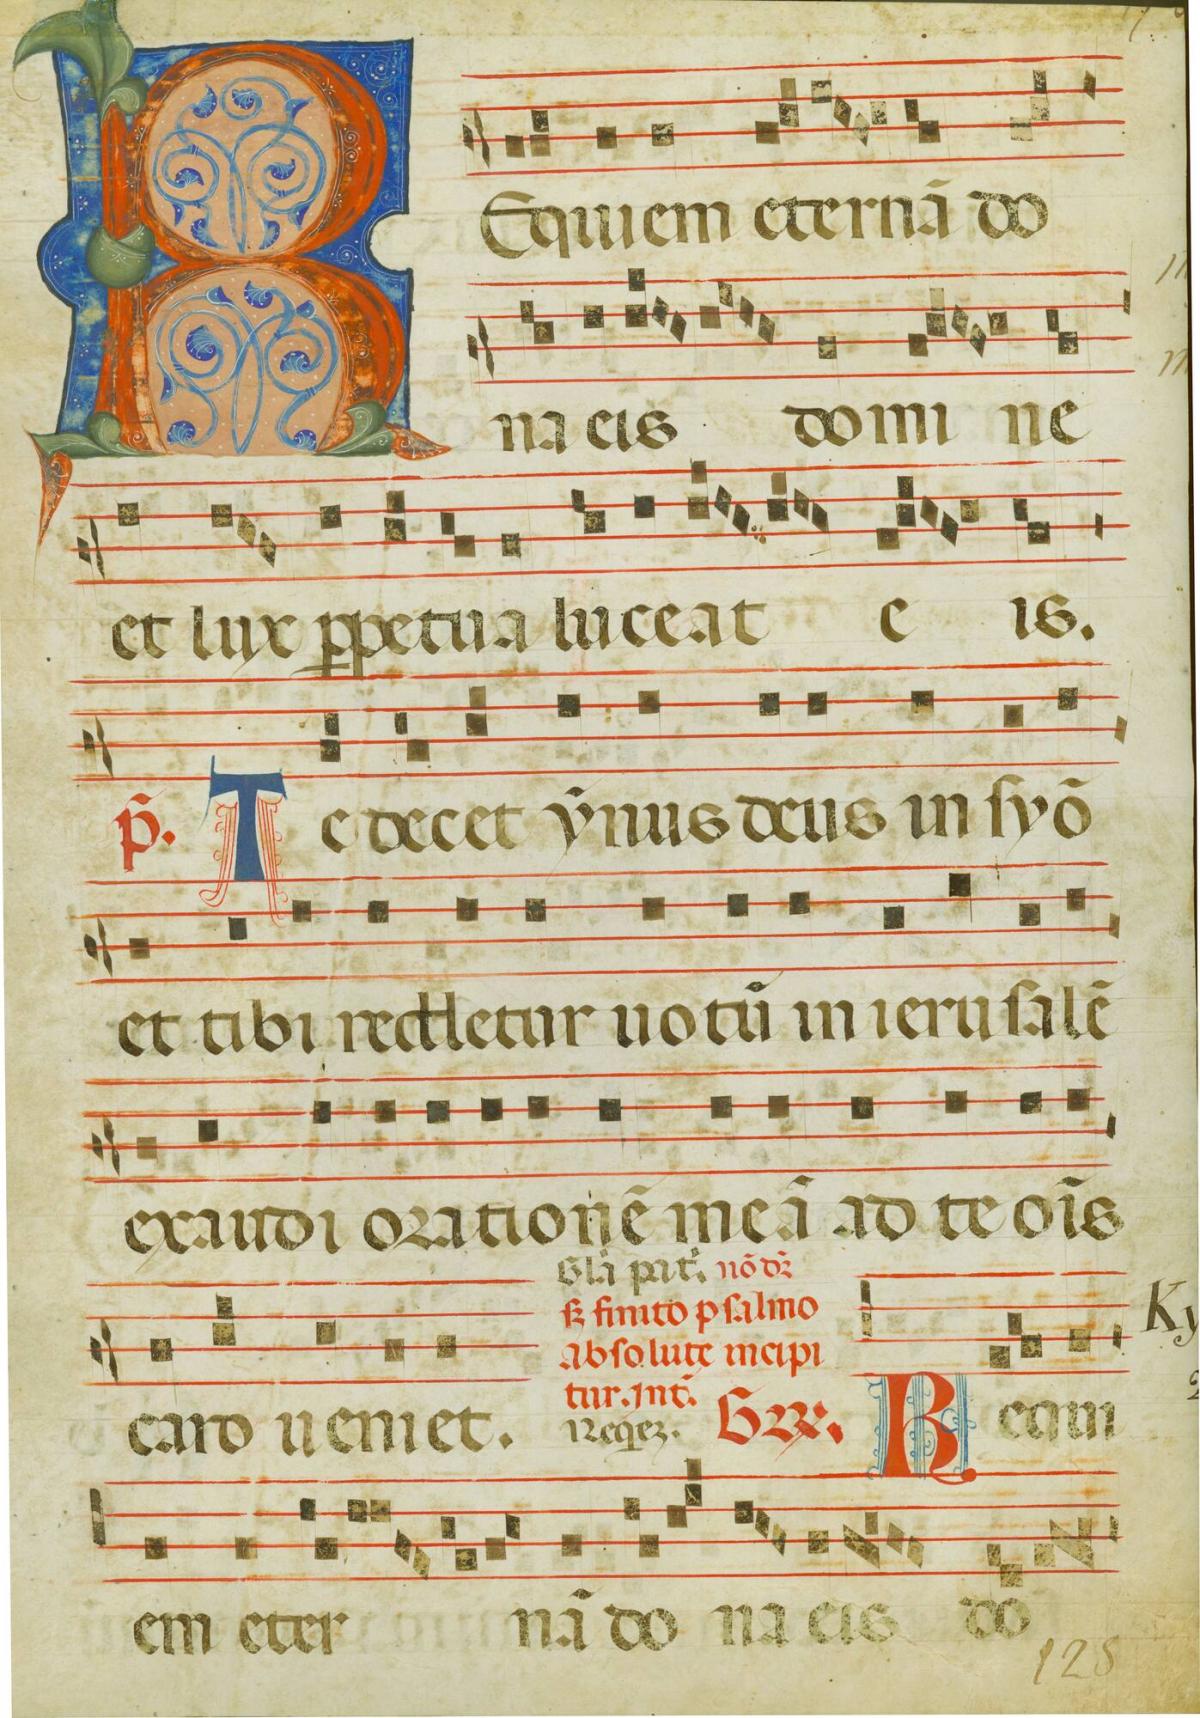 REquiem eternā do
na eis domine
et lux ꝑpetua luceat eis.
p̄. Te decet ȳnus deus in syō
et tibi reddetur uotū in ierusalē
exaudi orationē meā ad te oīs
caro ueniet.
Glā pat͛. nō dr̄
sꝫ finito psalmo
absolute incipi
tur. Int̄.
Reqꝫ. Gr̄. Requi
Ky
em eternā dona eis do
128